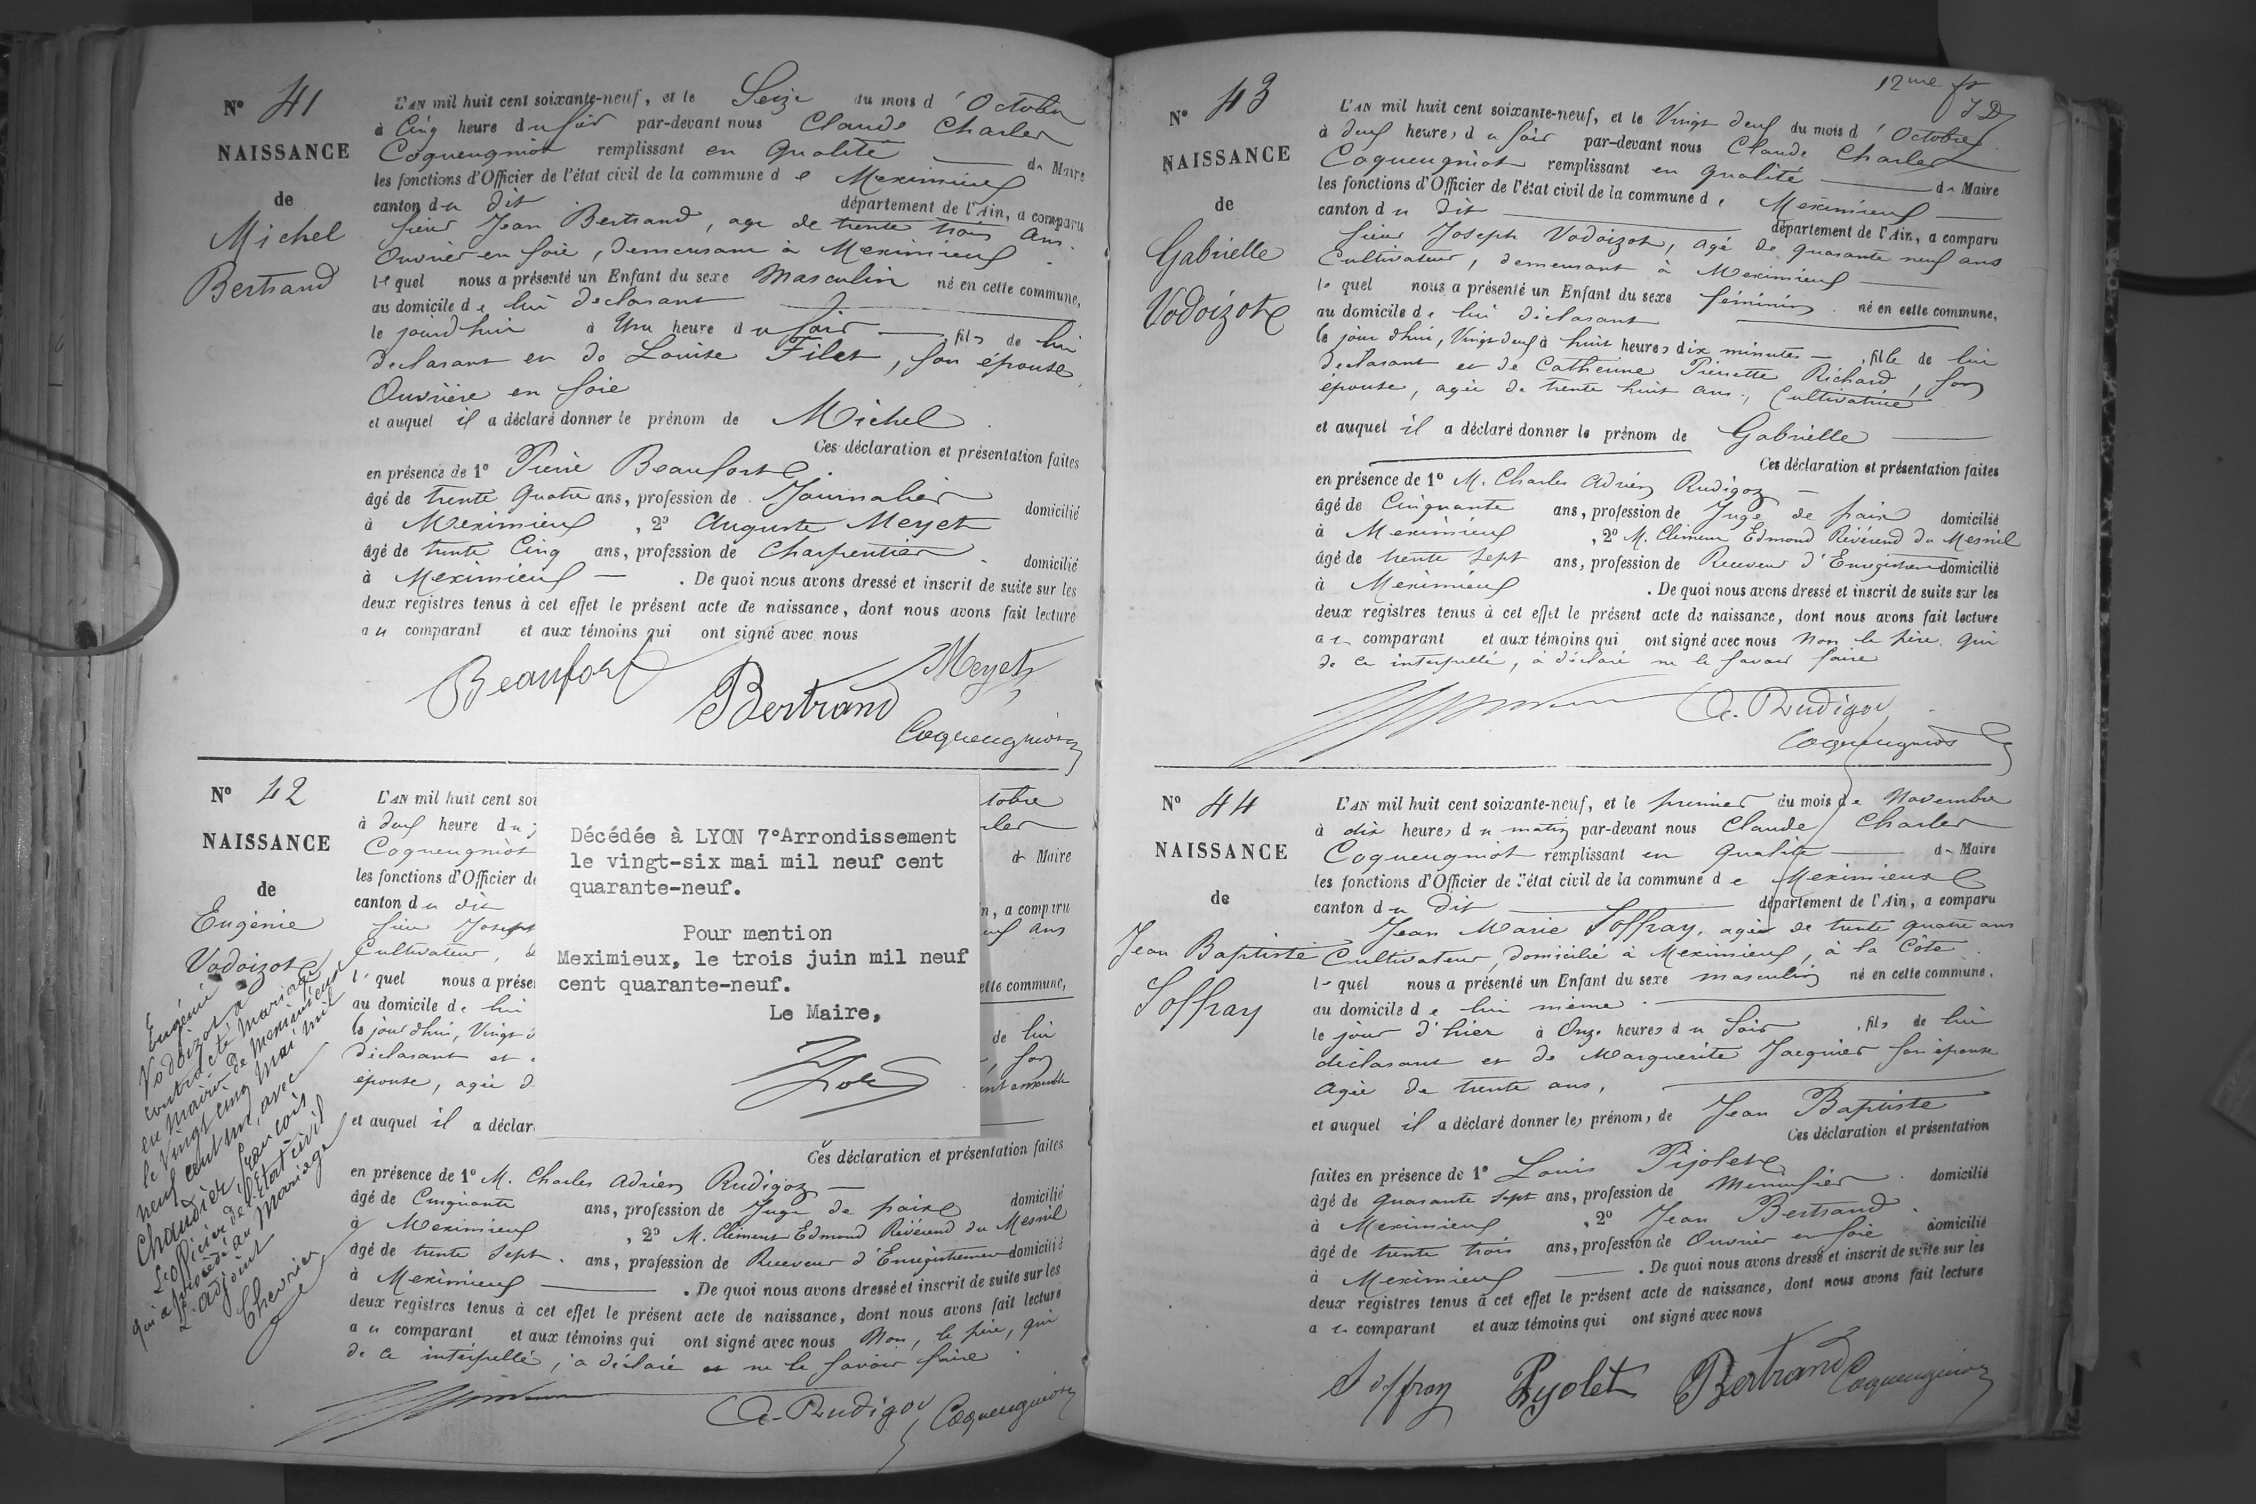 Nº 41
NAISSANCE
de
Michel
Bertrand
L'AN mil huit cent soixante-neuf, et le Seize du mois d'Octobre
à Cinq heure du soir par-devant nous Claude Charles
Coqueugniot remplissant en qualité de Maire
les fonctions d'Officier de l'état civil de la commune de Meximieux
canton du dit département de l'Ain, a comparu
sieur Jean Bertrand, age de trente trois ans.
Ouvrier en soie, demeurant à Meximieux
lequel nous a présenté un Enfant du sexe Masculin né en cette commune,
au domicile de lui declarant
le jourd'hui à Une heure du soir fils de lui
declarant et de Louise Filet, son épouse
Ouvrière en soie
et auquel il a déclaré donner le prénom de Michel
Ces déclaration et présentation faites
en présence de 1º Pierre Beaufort
âgé de trente quatre ans, profession de Journalier domicilié
à Meximieux, 2º Auguste Meyet
âgé de trente Cinq ans, profession de Charpentier domicilié
à Meximieux. De quoi nous avons dressé et inscrit de suite sur les
deux registres tenus à cet effet le présent acte de naissance, dont nous avons fait lecture
au comparant et aux témoins qui ont signé avec nous
Beaufort Bertrand Meyet
Coqueugniot
Nº 42
NAISSANCE
de
Eugénie
Vodoizot
Eugénie
Vodoizot a
contracté mariage
en mairie de Meximieux
le vingt cinq mai mil
neuf cent un, avec
Chaudier, françois
L'officier de l'Etat civil
qui a procédé au mariage
L'adjoint
Chevrier
L'AN mil huit cent soi
à deux heure du
Coqueugniot
les fonctions d'Officier de
canton du dit
sieur Joseph
Cultivateur, d
lequel nous a prése
au domicile de lui
le jour d'hui, Vingt d
déclarant et
épouse, agée d
et auquel il a déclar
tobre
rles
de Maire
n, a comparu
euf ans
ette commune,
de lui
son
Décédée à LYON 7ºArrondissement
le vingt-six mai mil neuf cent
quarante-neuf.
Pour mention
Meximieux, le trois juin mil neuf
cent quarante-neuf.
Le Maire,
Ces déclaration et présentation faites
en présence de 1º M. Charles Adrien Rudigoz
âgé de Cinquante ans, profession de Juge de paix domicilié
à Meximieux, 2º M. Clément Edmond Révérend du Mesnil
âgé de trente Sept ans, profession de Receveur d'Enregistremen domicilié
à Meximieux. De quoi nous avons dressé et inscrit de suite sur les
deux registres tenus à cet effet le présent acte de naissance, dont nous avons fait lecture
au comparant et aux témoins qui ont signé avec nous Non, le père, qui
de ce interpellé, a déclaré ne le savoir faire
A. Rudigoz Coqueugniot
12me ft
Nº 43
NAISSANCE
de
Gabrielle
Vodoizot
L'AN mil huit cent soixante-neuf, et le Vingt deux du mois d'Octobre
à deux heures du soir par-devant nous Claude Charles
Coqueugniot remplissant en qualité de Maire
les fonctions d'Officier de l'état civil de la commune de Meximieux
canton du dit département de l'Ain, a comparu
sieur Joseph Vodoizot, agé de quarante neuf ans
Cultivateur, demeurant à Meximieux
lequel nous a présenté un Enfant du sexe féminin né en cette commune,
au domicile de lui déclarant
le jour d'hui, Vingt deux à huit heures dix minutes, fille de lui
declarant et de Catherine Pierrette Richard, son
épouse, agée de trente huit ans, Cultivatrice
et auquel il a déclaré donner le prénom de Gabrielle
Ces déclaration et présentation faites
en présence de 1º M. Charles Adrien Rudigoz
âgé de Cinquante ans, profession de Juge de paix domicilié
à Meximieux, 2º M. Clément Edmond Révérend du Mesnil
âgé de trente sept ans, profession de Receveur d'Enregistrem domicilié
à Meximieux. De quoi nous avons dressé et inscrit de suite sur les
deux registres tenus à cet effet le présent acte de naissance, dont nous avons fait lecture
au comparant et aux témoins qui ont signé avec nous Non le père qui
de ce interpellé, a déclaré ne le savoir faire
A. Rudigoz
Coqueugniot
Nº 44
NAISSANCE
de
Jean Baptiste
Soffray
L'AN mil huit cent soixante-neuf, et le premier du mois de Novembre
à dix heures du matin par-devant nous Claude Charles
Coqueugniot remplissant en qualité de Maire
les fonctions d'Officier de l'état civil de la commune de Meximieux
canton du dit département de l'Ain, a comparu
Jean Marie Soffray, agée de trente quatre ans
Cultivateur, domicilié à Meximieux, à la Côte
lequel nous a présenté un Enfant du sexe masculin né en cette commune,
au domicile de lui même
le jour d'hier à Onze heures du soir, fils de lui
déclarant et de Marguerite Jacquier son épouse
agée de trente ans,
et auquel il a déclaré donner les prénoms de Jean Baptiste
Ces déclaration et présentation
faites en présence de 1º Louis Pijolet
âgé de quarante sept ans, profession de Menuisier domicilié
à Meximieux, 2º Jean Bertrand
âgé de trente trois ans, profession de Ouvrier en soie domicilié
à Meximieux. De quoi nous avons dressé et inscrit de suite sur les
deux registres tenus à cet effet le présent acte de naissance, dont nous avons fait lecture
au comparant et aux témoins qui ont signé avec nous
Soffray Pijolet Bertrand Coqueugniot